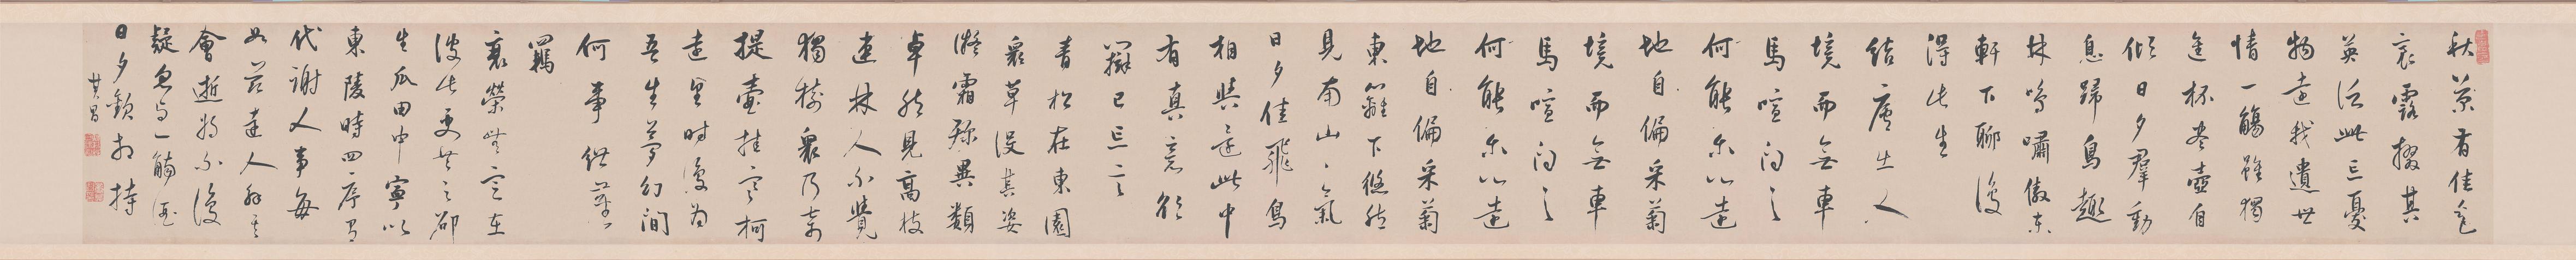 秋菊有佳色
裛露掇其
英泛此忘憂
物遠我遺世
情一觴雖獨
進杯盡壺自
傾日夕群動
息歸鳥趨
林鳴嘯傲東
軒下聊復
得此生
結廬在人
境而無車
馬喧问之
何能尔心遠
地自偏采菊
境而無車
馬喧问之
何能尔心遠
地自偏采菊
東籬下悠然
見南山〻氣
日夕佳飛鳥
相與還此中
有真意欲
辯已忘言
青松在東園
衆草沒其姿
凝霜殄異類
卓然見高枝
連林人不覺
獨樹衆乃奇
提壺挂寒柯
遠望時復為
吾生夢幻間
何事紲塵
羈
衰榮無定在
彼此更共之邵
生瓜田中寧似
東陵時四序有
代謝人事每
如茲達人解其
會逝將不復
疑忽与一觴酒
日夕歡相持
其昌